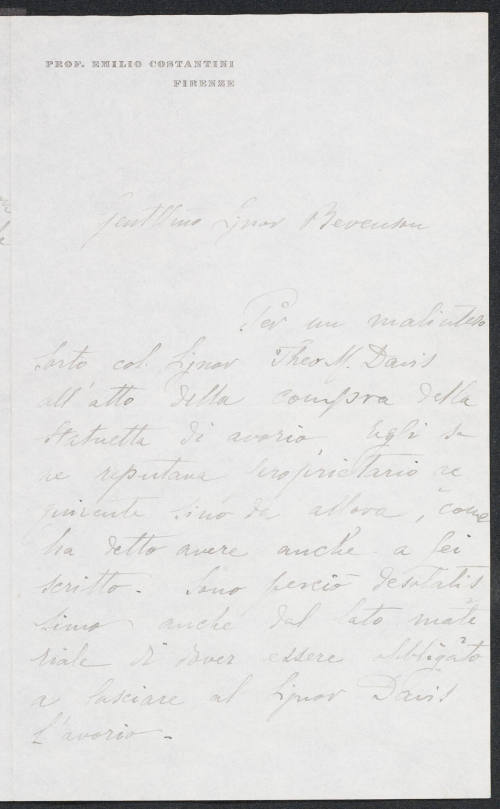 PROF. EMILIO COSTANTINI
FIRENZE
Gentllmo Signor Berenson
Per un malinteso
sorto col Signor Theo M. Davis
all'atto della compra della
statuetta di avorio Egli se
ne reputava proprietario ac
quirente sino da allora, come
ha detto avere anche a Lei
scritto. Sono perciò desolatis
simo anche dal lato mate
riale di dover essere obbligato
a lasciare al Signor Davis
l'avorio.